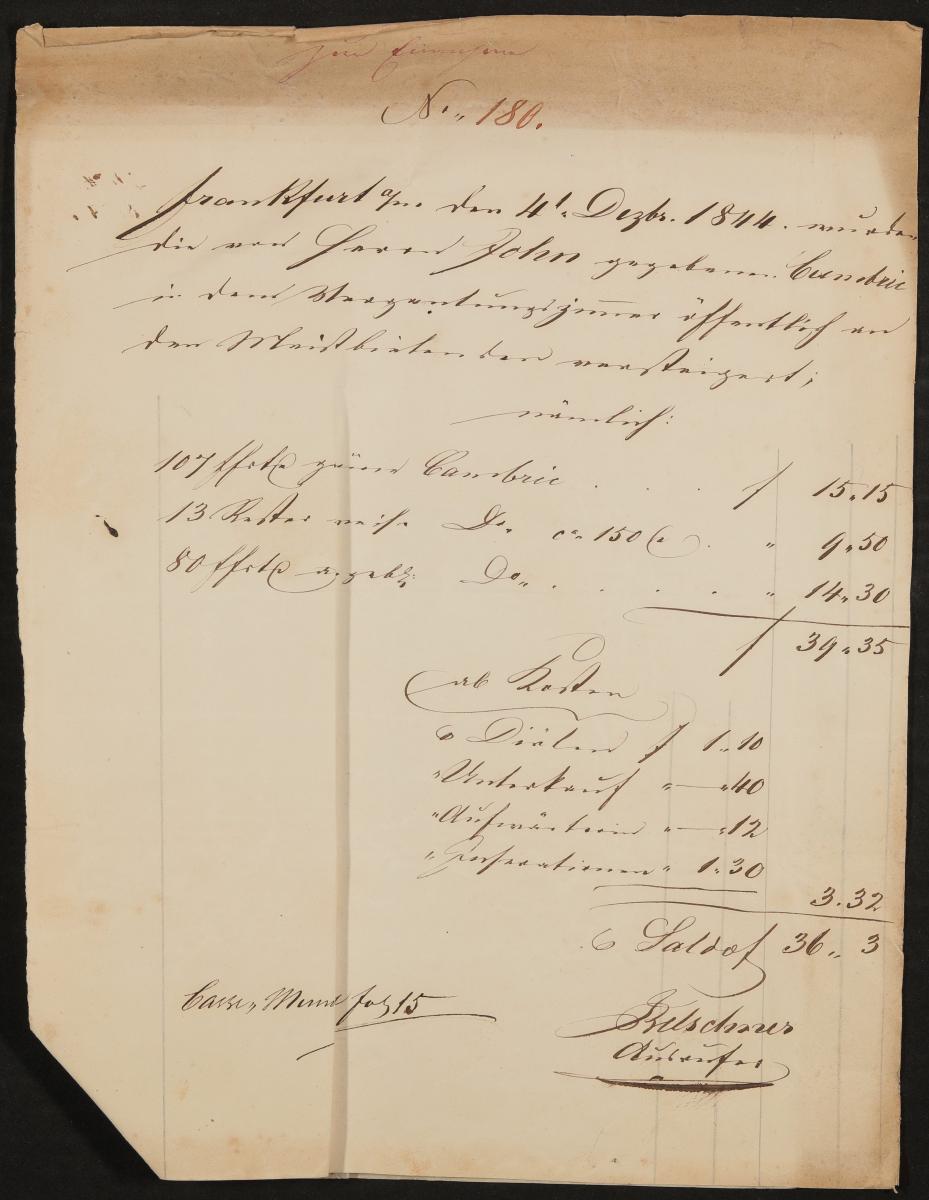 No. 180.
Frankfurt a/m. den 4t. Dezbr. 1844. wurden
die von Herrn John gegebenen Cambric
in dem Vergantungszimmer öffentlich an
den Meistbietenden versteigert;
nämlich:
107 grüne Cambric . . . f 15.15
13 Rester weise Do. ca. 150 . " 9.50
80 Do. . . . . . " 14.30
f 39.35
ab Kosten
Diäten f 1.10
" Unterkauf " — " 40
" Aufwärterin " — " 12
" Inserationen " 1.30
3.32
Saldo f 36.. 3
Cassa Fol 15
Belschner
Ausrufer